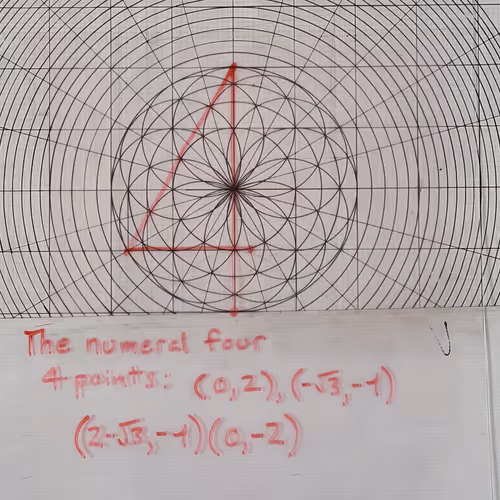 The numeral four
4 points: (0,2),(-√3,-1)
(2-√3,-1)(0,-2)